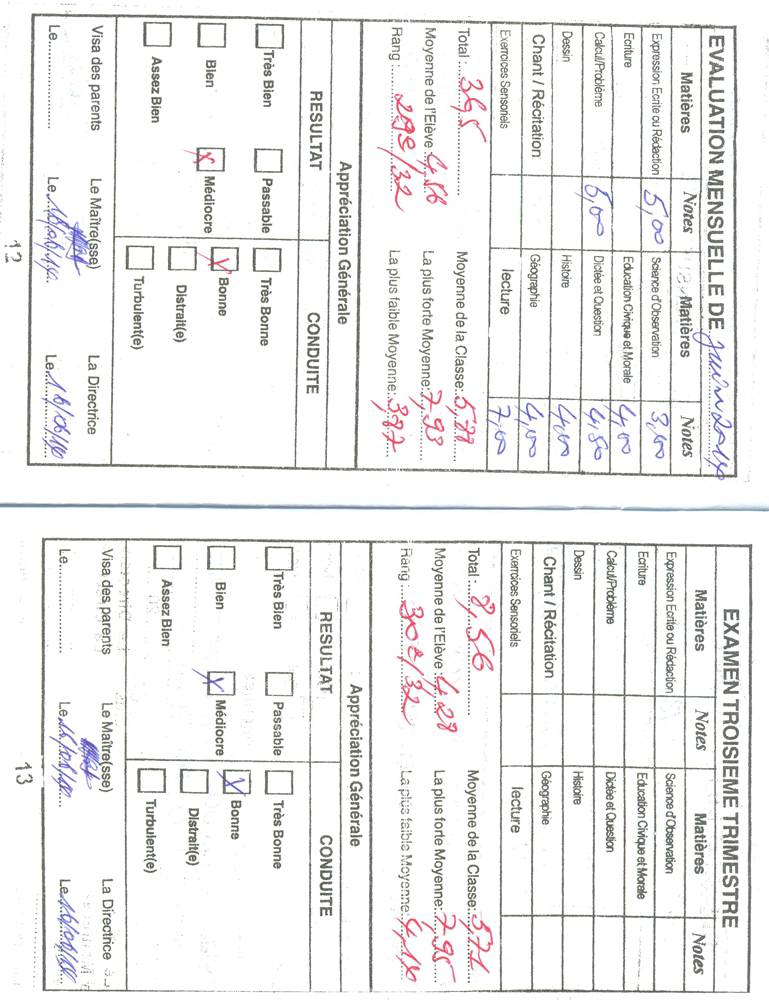 EVALUATION MENSUELLE DE juin 2014
Matières Notes Matières Notes
Expression Ecrite ou Rédaction 5,00 Science d'Observation 3,00
Ecriture Education Civique et Morale 4,00
Calcul/Problème 5,00 Dictée et Question 4,50
Dessin Histoire 4,00
Chant / Récitation Géographie 4,00
Exercices Sensoriels lecture 7,00
Total : 36,5 Moyenne de la Classe: 5,77
Moyenne de l'Elève : 4,56 La plus forte Moyenne: 7,93
Rang : 29e/32 La plus faible Moyenne: 3,87
Appréciation Générale
RESULTAT CONDUITE
Très Bien Passable Très Bonne
Bien X Médiocre X Bonne
Assez Bien Distrait(e)
Turbulent(e)
Visa des parents Le Maître(sse) La Directrice
Le Le 16/06/14 Le 16/06/14
12
EXAMEN TROISIEME TRIMESTRE
Matières Notes Matières Notes
Expression Ecrite ou Rédaction Science d'Observation
Ecriture Education Civique et Morale
Calcul/Problème Dictée et Question
Dessin Histoire
Chant / Récitation Géographie
Exercices Sensoriels lecture
Total : 8,56 Moyenne de la Classe: 5,71
Moyenne de l'Elève : 4,28 La plus forte Moyenne: 7,95
Rang : 30e/32 La plus faible Moyenne: 4,14
Appréciation Générale
RESULTAT CONDUITE
Très Bien Passable Très Bonne
Bien X Médiocre X Bonne
Assez Bien Distrait(e)
Turbulent(e)
Visa des parents Le Maître(sse) La Directrice
Le Le 16/06/14 Le 16/06/14
13